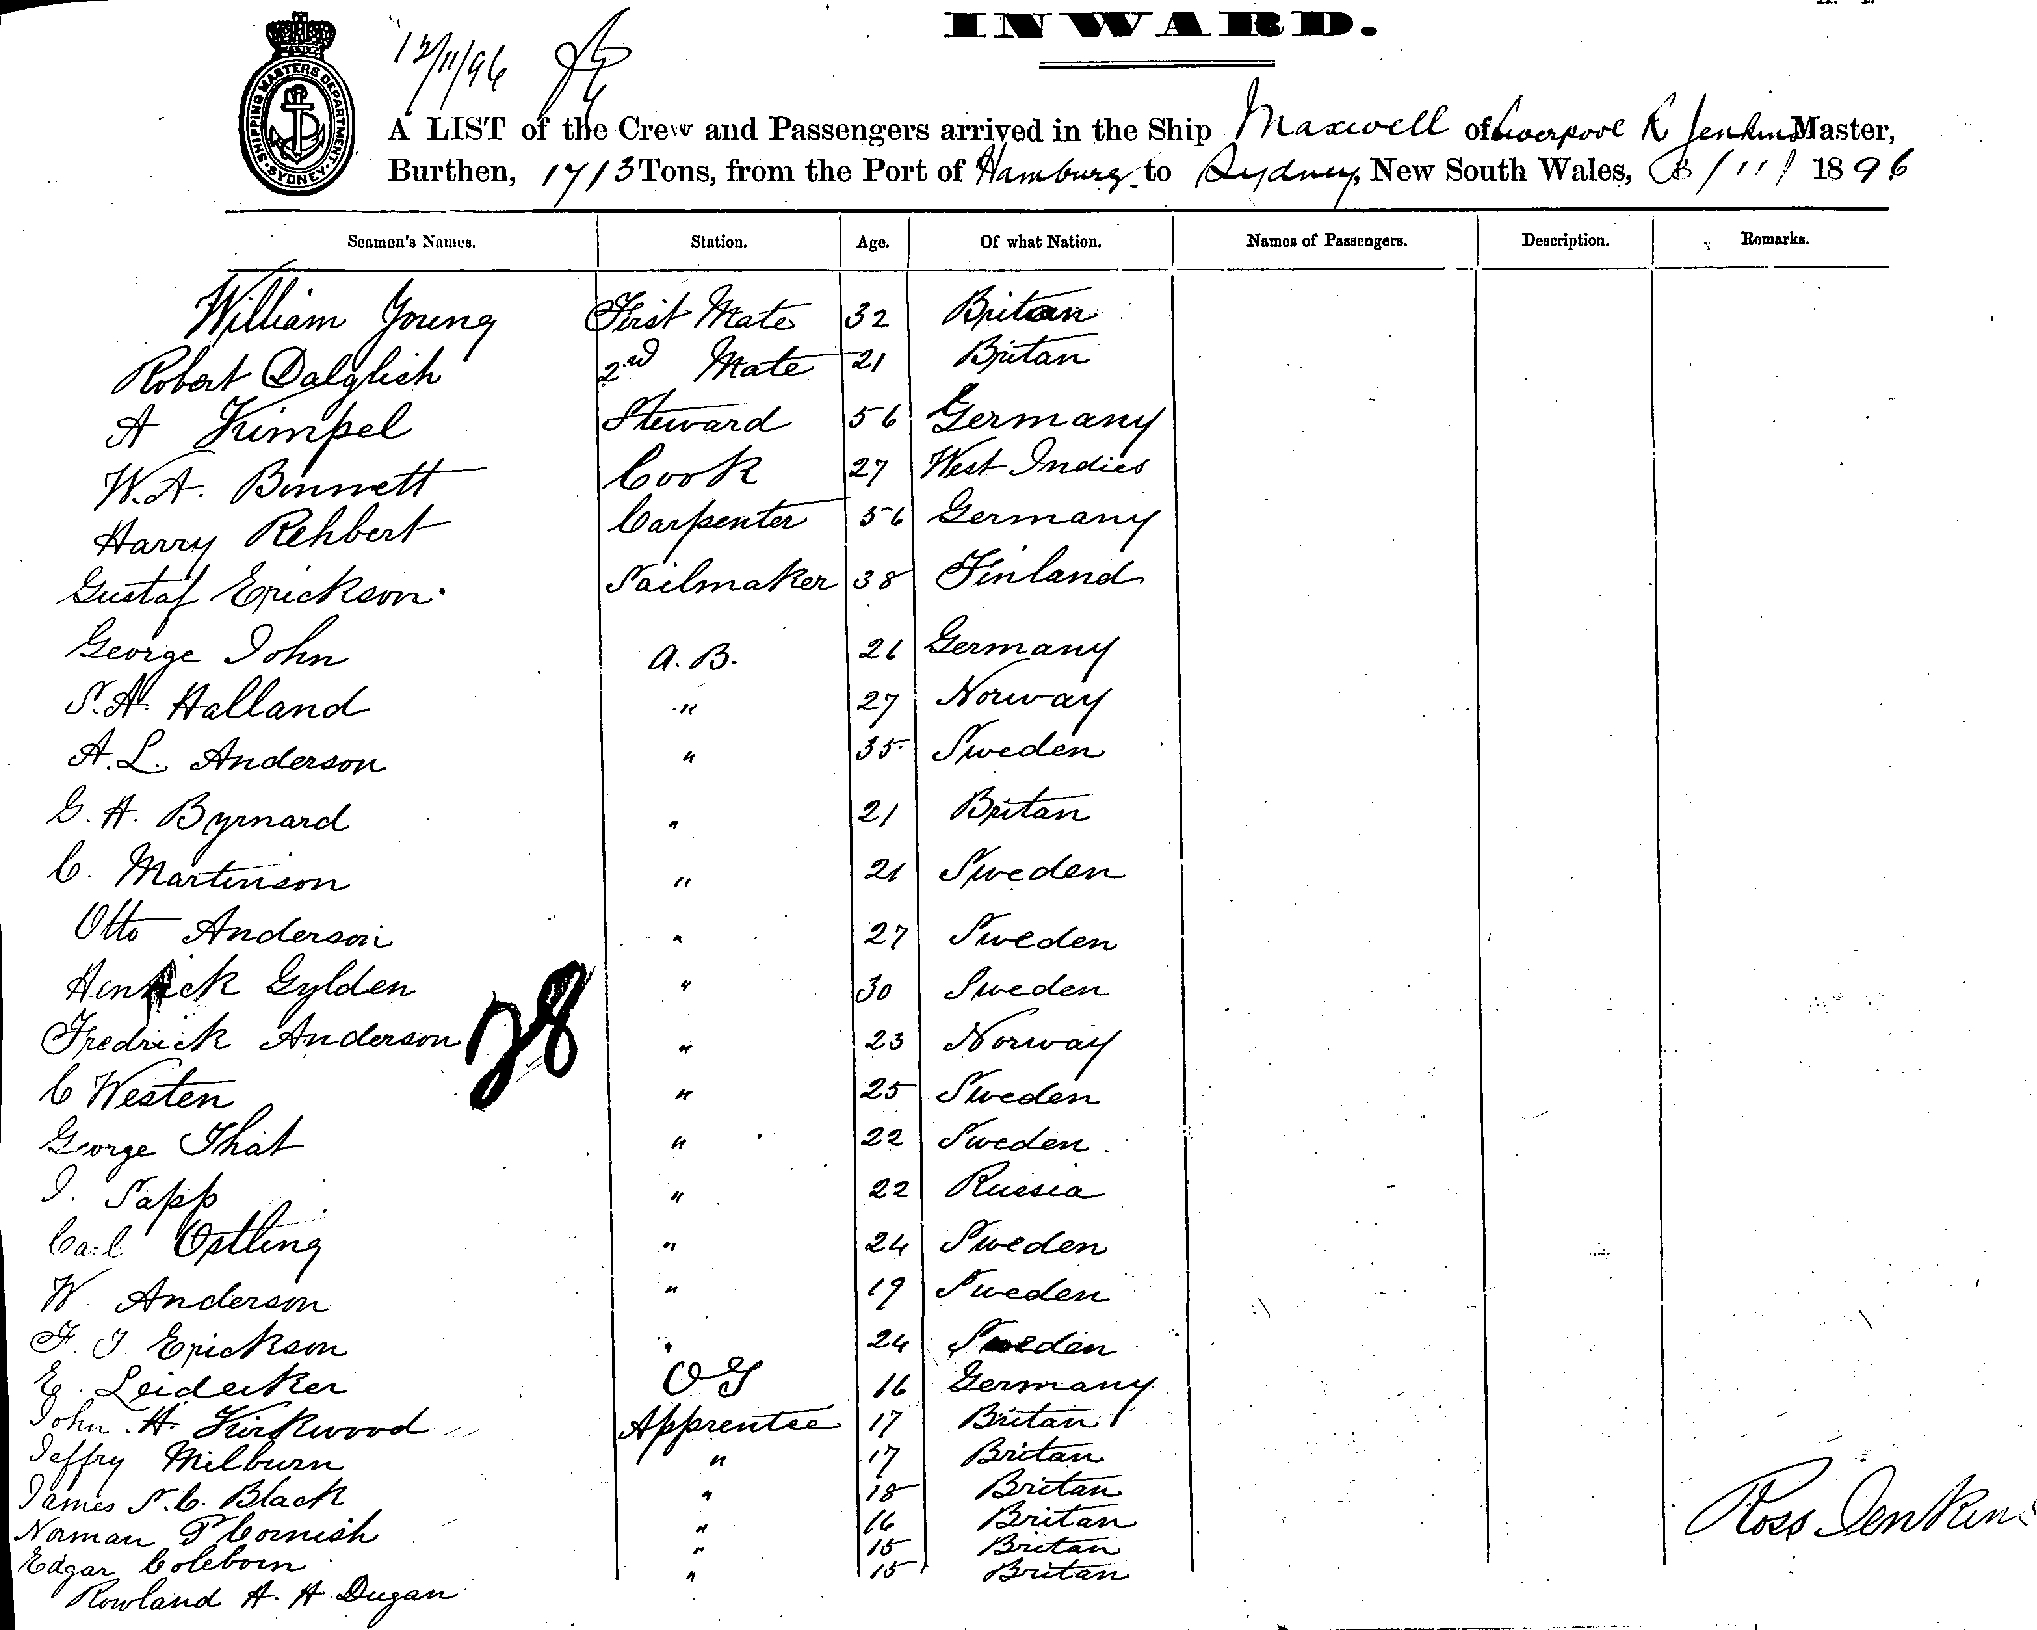 INWARD.
12/11/96
SHIPPING MASTERS DEPARTMENT SYDNEY
A LIST of the Crew and Passengers arrived in the Ship Maxwell of Liverpool R Jenkins Master,
Burthen, 1713 Tons, from the Port of Hamburg to Sydney, New South Wales, /11/ 1896
Seamen's Names. Station. Age. Of what Nation. Names of Passengers. Description. Remarks.
William Young First Mate 32 Britan
Robert Dalglish 2nd Mate 21 Britan
A Kimpel Steward 56 Germany
W.A. Bennett Cook 27 West Indies
Harry Rehbert Carpenter 56 Germany
Gustaf Erickson Sailmaker 38 Finland
George John A.B. 26 Germany
S.A. Halland " 27 Norway
A.L. Anderson " 35 Sweden
G.H. Byrnard " 21 Britan
C. Martinson " 21 Sweden
Otto Anderson " 27 Sweden
Henrick Gylden " 30 Sweden
28
Fredrick Anderson " 23 Norway
C Westen " 25 Sweden
George That " 22 Sweden
J. Sapp " 22 Russia
Carl Ostling " 24 Sweden
W. Anderson " 19 Sweden
F. J. Erickson " 24 Sweden
E. Leidecker OS 16 Germany
John. H. Kirkwood Apprentice 17 Britan
Jeffry Milburn " 17 Britan
James S.C. Black " 18 Britan
Norman P Cornish " 16 Britan
Edgar Coleborn " 15 Britan
Rowland A. H Dugan " 15 Britan
Ross Jenkins